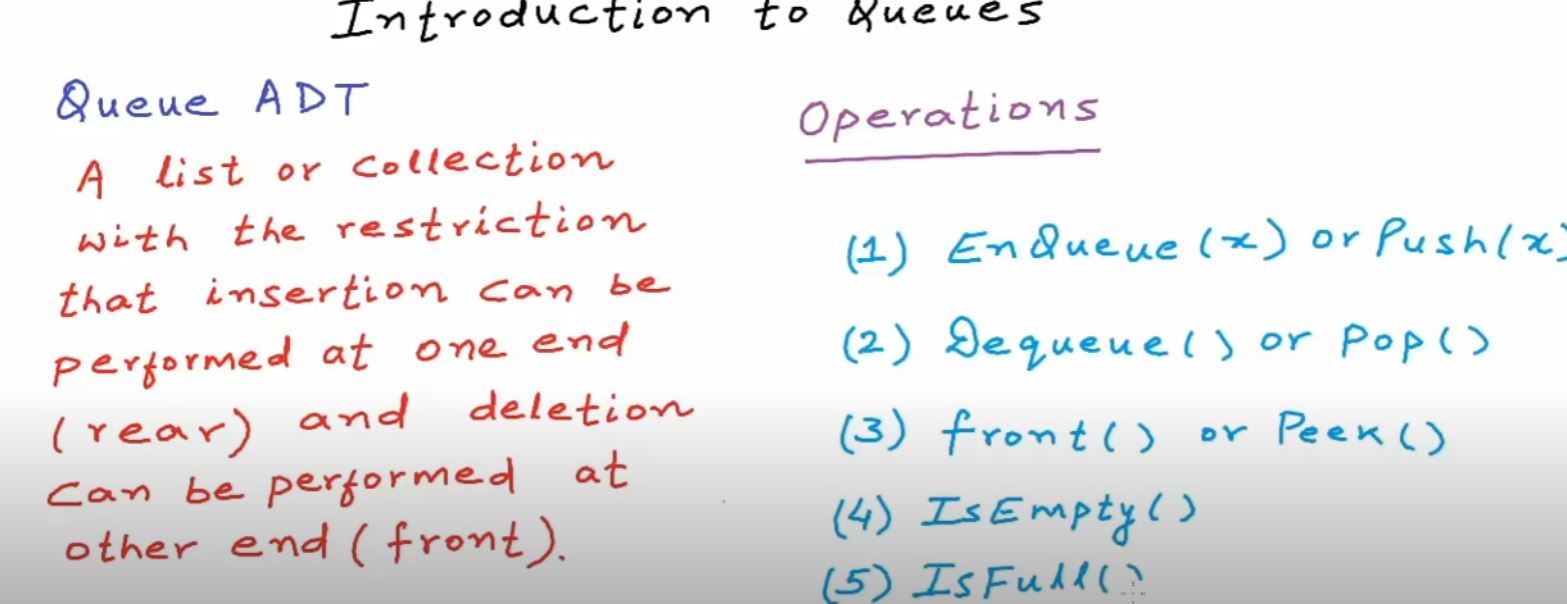 Introduction to Queues
Queue ADT
A list or collection
with the restriction
that insertion can be
performed at one end
(rear) and deletion
can be performed at
other end (front).
Operations
(1) EnQueue(x) or Push(x)
(2) Dequeue() or Pop()
(3) front() or Peek()
(4) IsEmpty()
(5) IsFull()